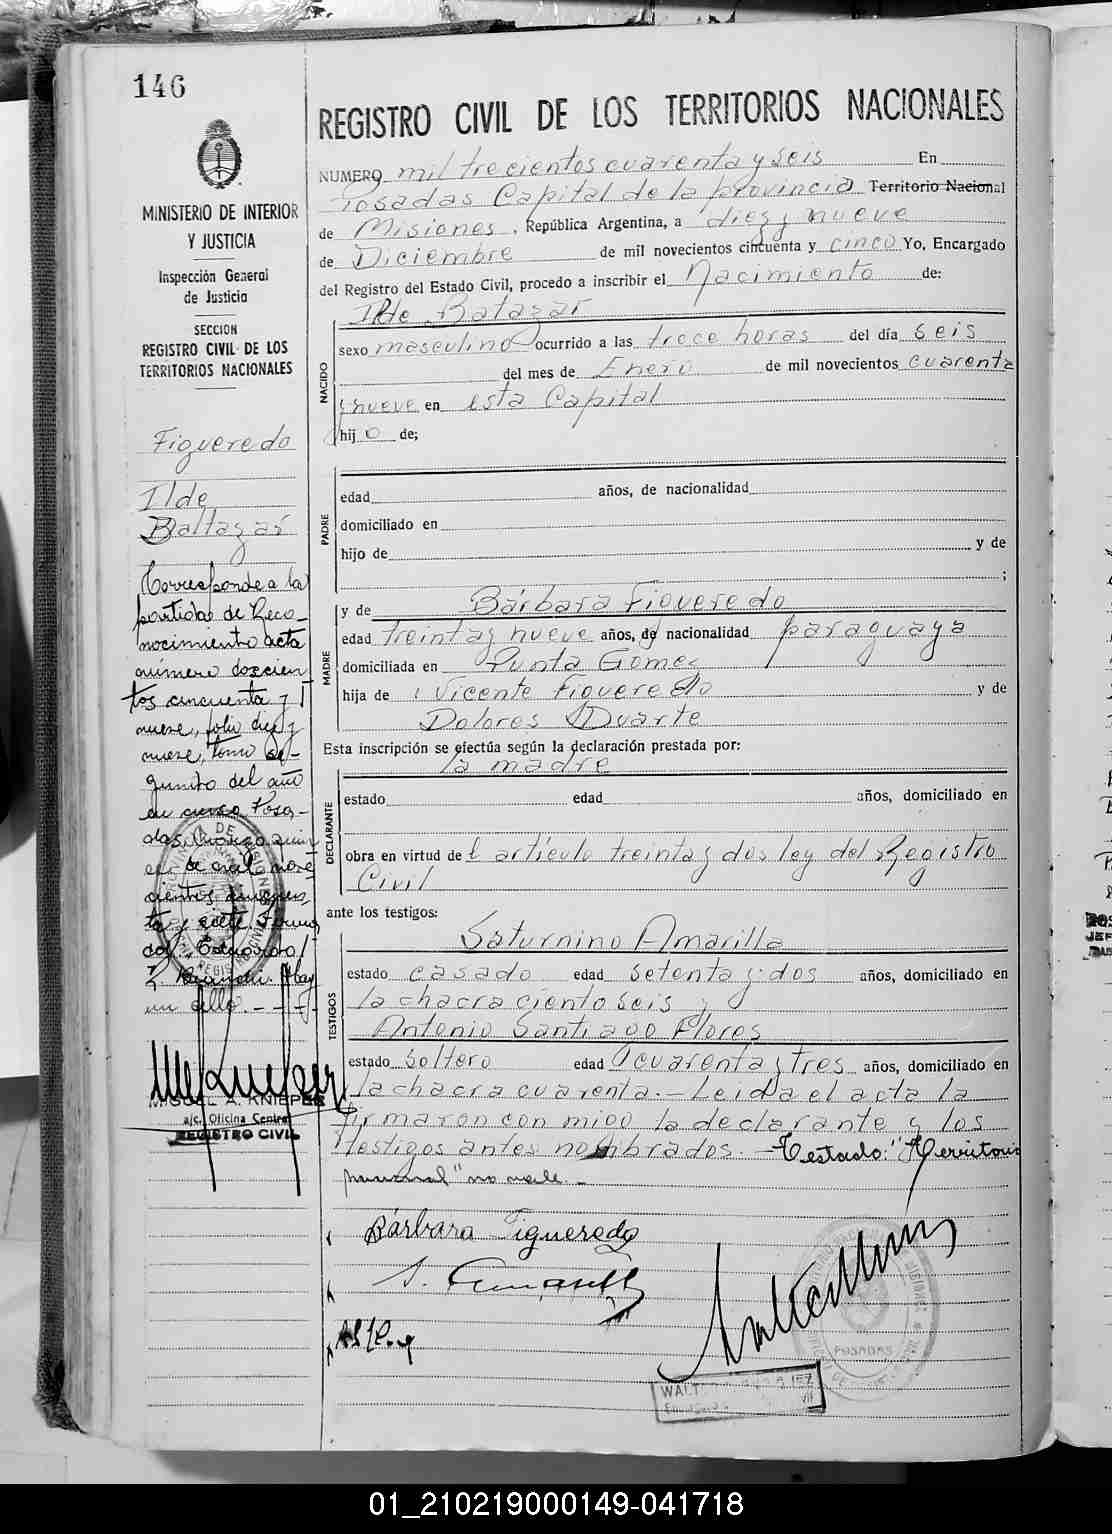 146
REGISTRO CIVIL DE LOS TERRITORIOS NACIONALES
MINISTERIO DE INTERIOR
Y JUSTICIA
Inspección General
de Justicia
SECCION
REGISTRO CIVIL DE LOS
TERRITORIOS NACIONALES
Figueredo
Ilde
Baltazar
Corresponde a la
partida de Reco-
nocimiento acta
número doscien
tos cincuenta y
nueve, folio diez y
nueve, tomo se-
gundo del año
en curso Posa-
das,
de mil nove
cientos cincuen
ta y siete
un sello.
MIGUEL A. KNIEPER
a/c. Oficina Central
REGISTRO CIVIL
NUMERO mil trecientos cuarenta y seis En
Posadas Capital de la provincia Territorio Nacional
de Misiones, República Argentina, a diez y nueve
de Diciembre de mil novecientos cincuenta y cinco Yo, Encargado
del Registro del Estado Civil, procedo a inscribir el Nacimiento de:
Ilde Batazar
NACIDO
sexo masculino ocurrido a las trece horas del día seis
del mes de Enero de mil novecientos cuarenta
y nueve en esta Capital
hijo de;
PADRE
edad años, de nacionalidad
domiciliado en
hijo de y de
;
MADRE
y de Bárbara Figueredo
edad treinta y nueve años, de nacionalidad paraguaya
domiciliada en Punta Gomes
hija de Vicente Figueredo y de
Dolores Duarte
Esta inscripción se efectúa según la declaración prestada por:
la madre
DECLARANTE
estado edad años, domiciliado en
obra en virtud del artículo treinta y dos ley del Registro
Civil
ante los testigos:
TESTIGOS
Saturnino Amarilla
estado casado edad setenta y dos años, domiciliado en
la chacra ciento seis y
Antonio Santiago Flores
estado soltero edad cuarenta y tres años, domiciliado en
la chacra cuarenta.- Leida el acta la
firmaron con migo la declarante y los
testigos antes nombrados.- Testado: "Territorio
nacional" no vale.-
Bárbara Figueredo
POSADAS
01_210219000149-041718